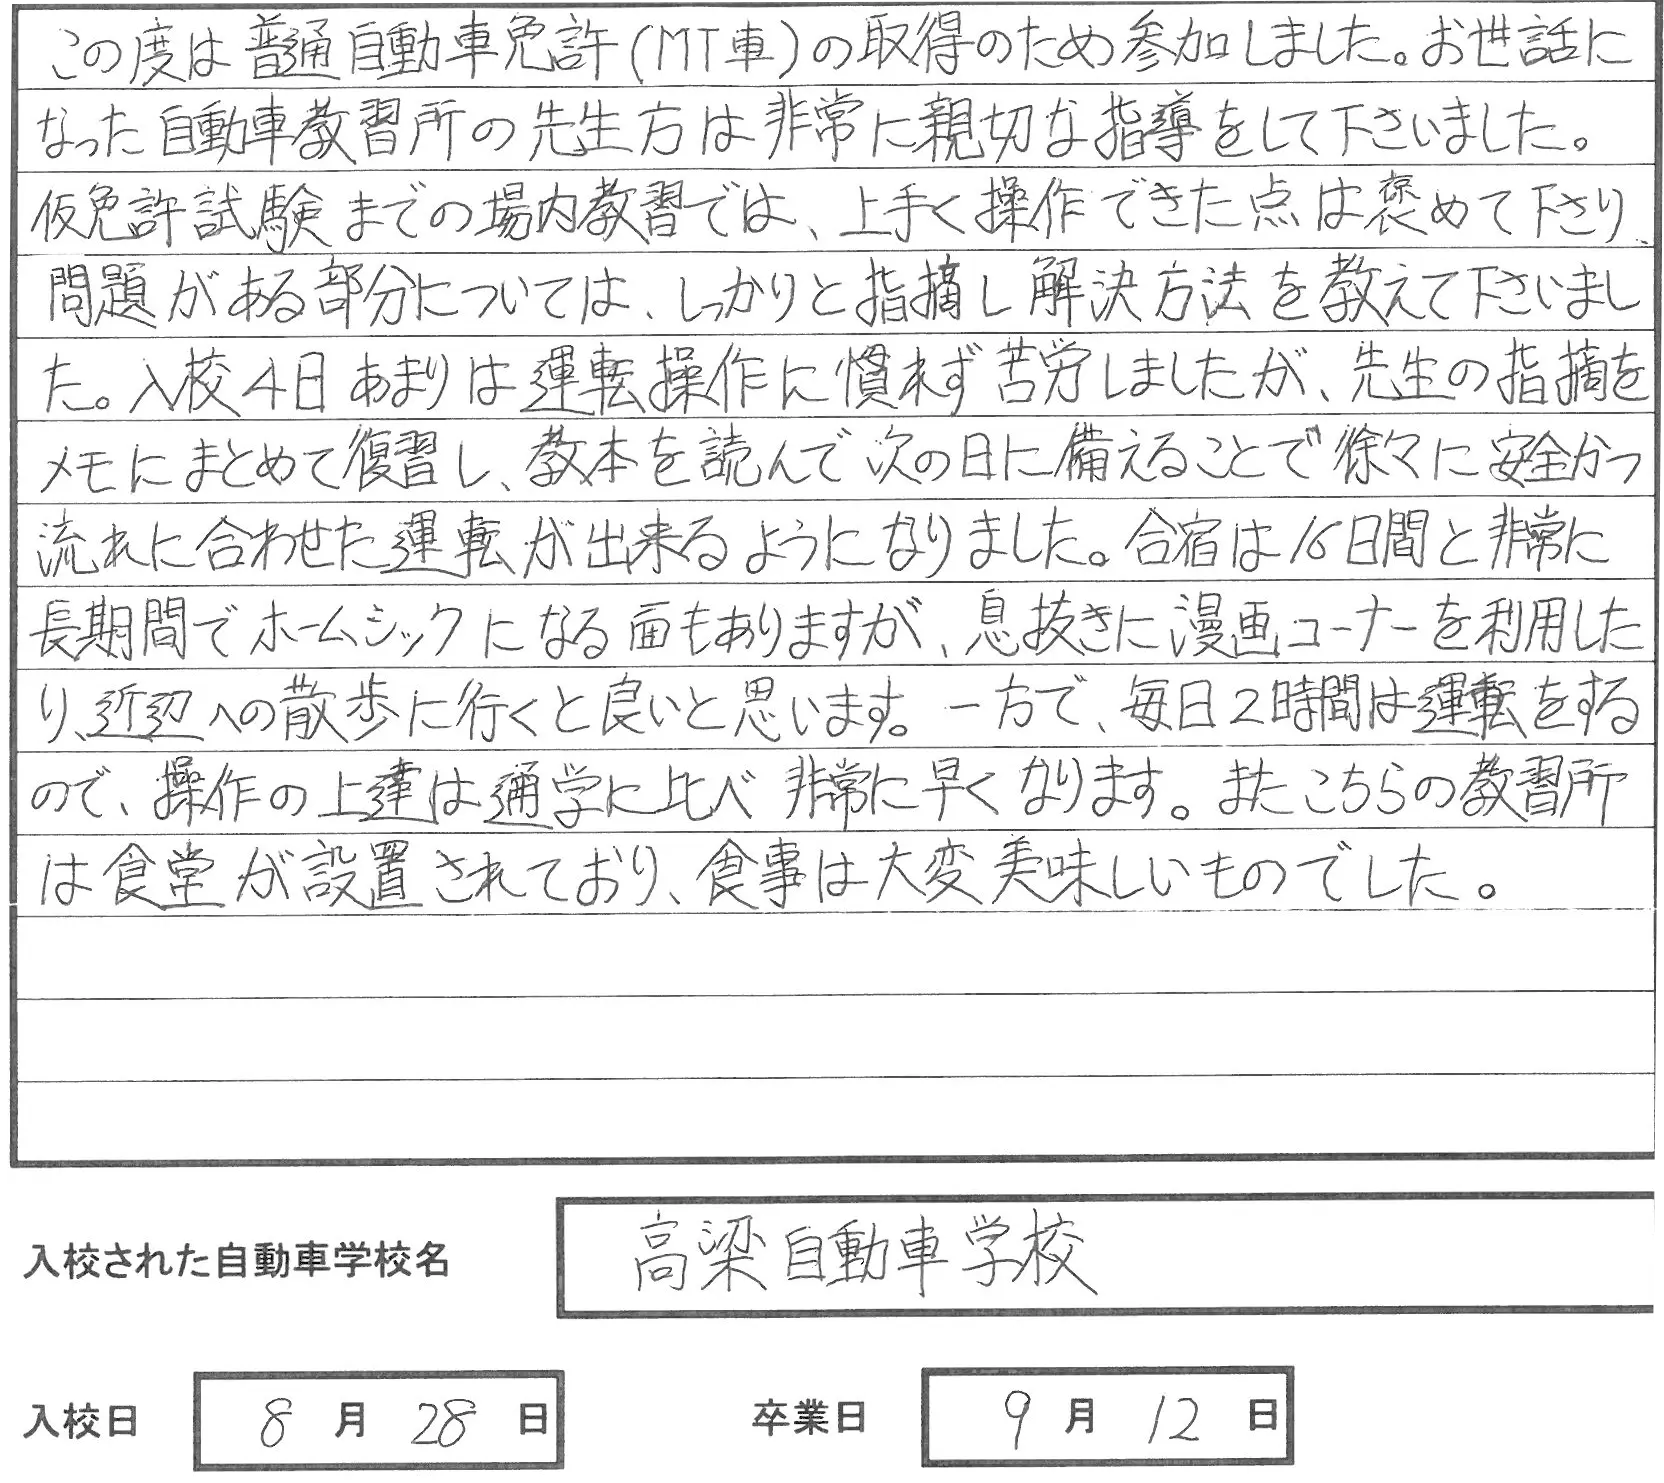 この度は普通自動車免許(MT車)の取得のため参加しました。お世話に
なった自動車教習所の先生方は非常に親切な指導をして下さいました。
仮免許試験までの場内教習では、上手く操作できた点は褒めて下さり、
問題がある部分については、しっかりと指摘し解決方法を教えて下さいまし
た。入校4日あまりは運転操作に慣れず苦労しましたが、先生の指摘を
メモにまとめて復習し、教本を読んで次の日に備えることで徐々に安全かつ
流れに合わせた運転が出来るようになりました。合宿は16日間と非常に
長期間でホームシックになる面もありますが、息抜きに漫画コーナーを利用した
り、近辺への散歩に行くと良いと思います。一方で、毎日2時間は運転をする
ので、操作の上達は通学に比べ非常に早くなります。またこちらの教習所
は食堂が設置されており、食事は大変美味しいものでした。
入校された自動車学校名 高梁自動車学校
入校日 8月28日 卒業日 9月12日